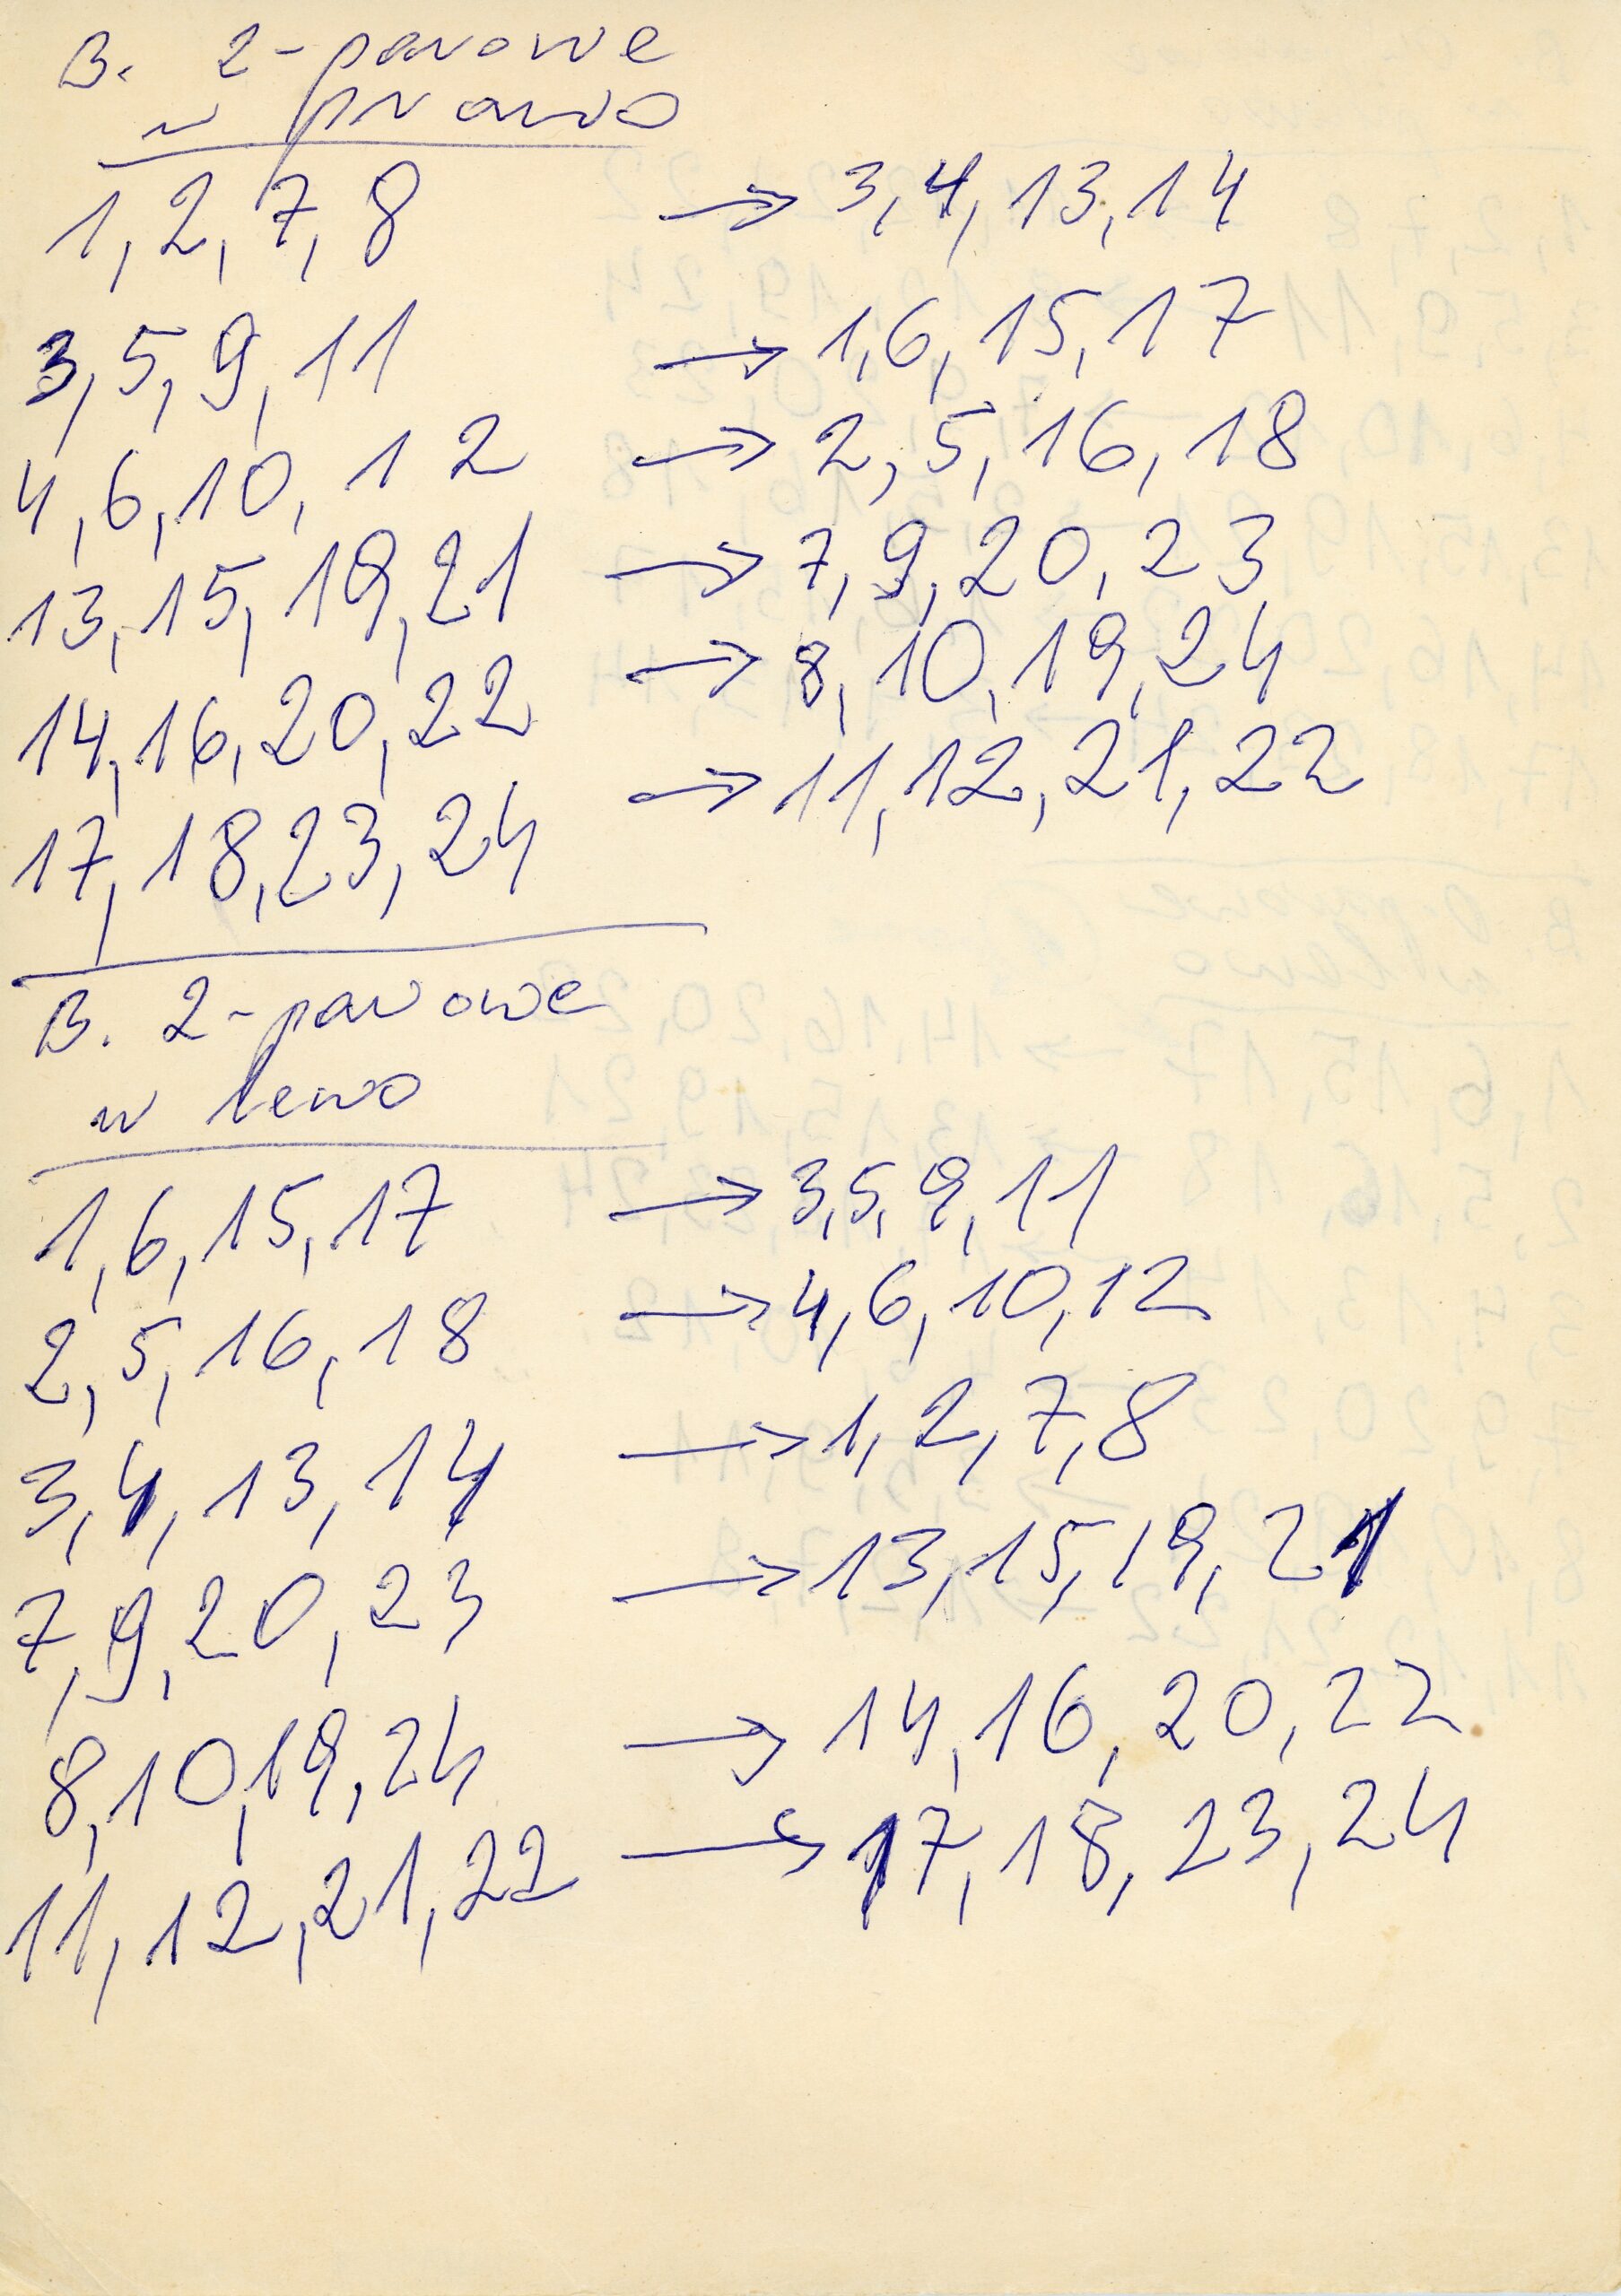 B. 2-parowe
w prawo
1, 2, 7, 8 → 3, 4, 13, 14
3, 5, 9, 11 → 1, 6, 15, 17
4, 6, 10, 12 → 2, 5, 16, 18
13, 15, 19, 21 → 7, 9, 20, 23
14, 16, 20, 22 → 8, 10, 19, 24
17, 18, 23, 24 → 11, 12, 21, 22
B. 2-parowe
w lewo
1, 6, 15, 17 → 3, 5, 9, 11
2, 5, 16, 18 → 4, 6, 10, 12
3, 4, 13, 14 → 1, 2, 7, 8
7, 9, 20, 23 → 13, 15, 19, 21
8, 10, 19, 24 → 14, 16, 20, 22
11, 12, 21, 22 → 17, 18, 23, 24